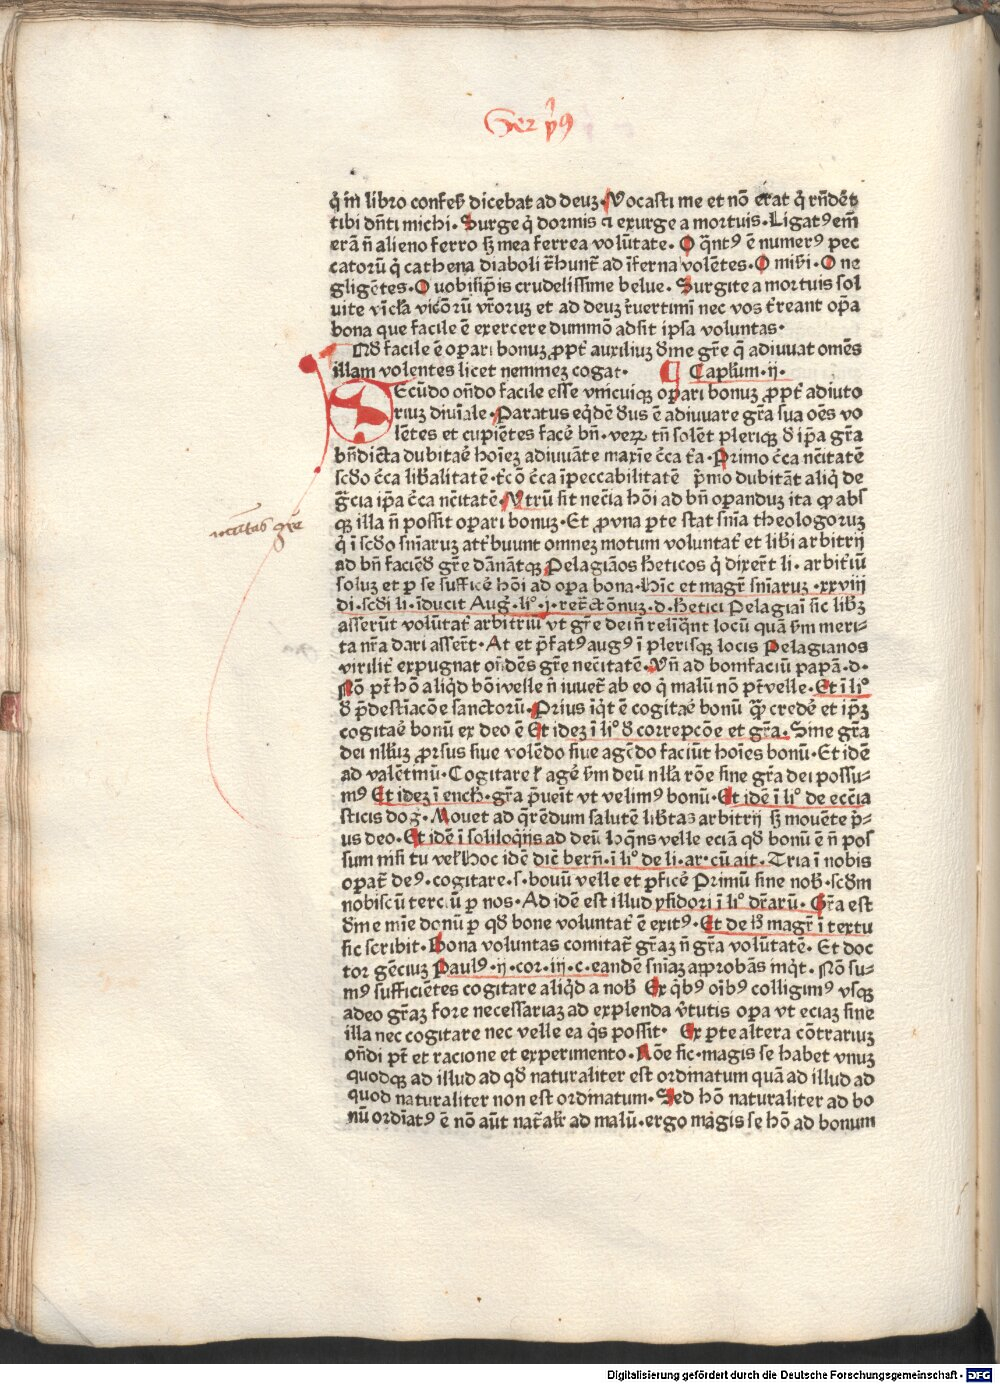 Ser p͛9
q̉ in̄ libro confesſ dicebat ad deuꝫ·Vocasti me et nō erat q̉ rn̄dēt
tibi dn̄ti michi·Surge q̉ dormis ⁊ exurge a mortuis·Ligatꝰ em̄
erā n̄ alieno ferro sꝫ mea ferrea volūtate·O q̄ntꝰ ē numerꝰ pec
catorū q̉ cathena diaboli t̄hunt̄ ad īferna volētes·O miẜi·O ne
gligētes·O uobisip̄is crudelissime belue·Surgite a mortuis sol
uite vīcl̄a vicōrū vr̄oruꝫ et ad deuꝫ r̉uertimī nec vos t̉reant op̄a
bona que facile ē exercere dummō adsit ipsa voluntas·
Qđ facile ē oꝑari bonuꝫ ꝓpt̄ auxiliuꝫ d̄ine gr̄e q̄ adiuuat om̄es
illam volentes licet nemmeꝫ cogat· Capl̄um·ij·
SEcūdo on̄do facile esse vnicuiqꝫ oꝑari bonuꝫ ꝓpt̄ adiuto
riuꝫ diuīale·Paratus eq̉dē d̄us ē adiuuare gr̄a sua oēs vo
lētes et cupiētes facē bn̄·veꝝ tn̄ solēt pleriqꝫ d̄ ip̄a gr̄a
bn̄dicta dubitaē hoīeꝫ adiuuāte maxīe c̄ca t̄a·Primo c̄ca nc̄itatē
scdo c̄ca lib̄alitatē·t̄cō c̄ca īpeccabilitatē p̄mo dubitāt aliq̉ de
gr̄cia ip̄a c̄ca nc̄itatē·Vtrū sit nec̄ia hōi ad bn̄ oꝑanduꝫ ita ꝙ abs
qꝫ illa n̄ possit oꝑari bonuꝫ·Et ꝓ vna ꝑte stat sn̄ia theologoruꝫ
q̉ ī scdo sn̄iaruꝫ att̉buunt omneꝫ motum voluntat̄ et lib̄i arbitrij
ad bn̄ faciēd̄ gr̄e dānātqꝫ Pelagiāos h̄eticos q̉ dixer̄t li·arbit̉iū
soluꝫ et ꝑ se sufficē hōi ad oꝑa bona·hīc et magr̄ sn̄iaruꝫ·xxviij
di·scdi li·īducit Aug̉·li°·j·ret̄ctōnuꝫ·d·hetici Pelagiaī sic lib̄ꝫ
asserūt volūtat̄ arbitriū vt gr̄e dei n̄ relīq̄nt locū quā ẜm meri-
ta nr̄a dari asser̄t·At et p̄fatꝰ augꝰ ī plerisqꝫ locis Pelagianos
virilit̄ expugnat on̄dēs gr̄e nec̄itatē·Vn̄ ad bonifaciū papā·d·
Nō pt̄ hō aliq̉d bōi velle n̄ iuuet̄ ab eo q̉ malū nō pt̄ velle·Et ī li°
d̄ p̄destīacōe sanctorū·Prius iq̉t ē cogitaē bonū q̄ꝫ credē et ip̄ꝫ
cogitaē bonū ex deo ē Et ideꝫ ī li° d̄ correpcōe et gr̄a·Sine gr̄a
dei nll̄uꝫ ꝓrsus siue volēdo siue agēdo faciūt hoīes bonū·Et idē
ad valētinū·Cogitare l̉ agē ẜm deū nll̄a rōe sine gr̄a dei possu-
mꝰ Et ideꝫ ī ench̉·gr̄a p̄ueīt vt velimꝰ bonū·Et idē ī li° de ecc̄ia
sticis dog̉·Mouet ad q̄rēdum salutē lib̄tas arbitrij sꝫ mouēte p̄-
us deo·Et idē ī soliloq̉is ad deū loq̄ns velle eciā qđ bonū ē n̄ pos
sum nisi tu vel̉ hoc idē dic̄ bern̄·ī li° de li·ar·cū ait·Tria ī nobis
oꝑat̄ deꝰ·cogitare·s·bouū velle et ꝑficē Primū sine nob̄·scd̄m
nobiscū terciū ꝑ nos·Ad idē est illud ysidori ī li° dr̄arū·Gr̄a est
d̄ine mīe donū ꝑ qđ bone voluntat̄ ē exitꝰ·Et de hͦ magr̄ ī textu
sic scribit·Bona voluntas comitat̄ gr̄aꝫ n̄ gr̄a volūtatē·Et doc
tor gēciuꝫ Paulꝰ·ij·cor·iij·c·eandē sn̄iaꝫ approbās inq̉t·Nō su-
mꝰ sufficiētes cogitare aliq̉d a nob̄ Ex q̉bꝰ oībꝰ colligimꝰ vsqꝫ
adeo gr̄aꝫ fore necessariaꝫ ad explenda v̉tutis oꝑa vt eciaꝫ sine
illa nec cogitare nec velle ea q̉s possit· Ex ꝑte altera cōtrariuꝫ
on̄di pt̄ et racione et experimento·Rōe sic·magis se habet vnuꝫ
quodqꝫ ad illud ad qđ naturaliter est ordinatum quā ad illud ad
quod naturaliter non est ordinatum·Sed hō naturaliter ad bo
nū ordīatꝰ ē nō aūt nat̄alr̄ ad malū·ergo magis se hō ad bonum
Digitalisierung gefördert durch die Deutsche Forschungsgemeinschaft - DFG